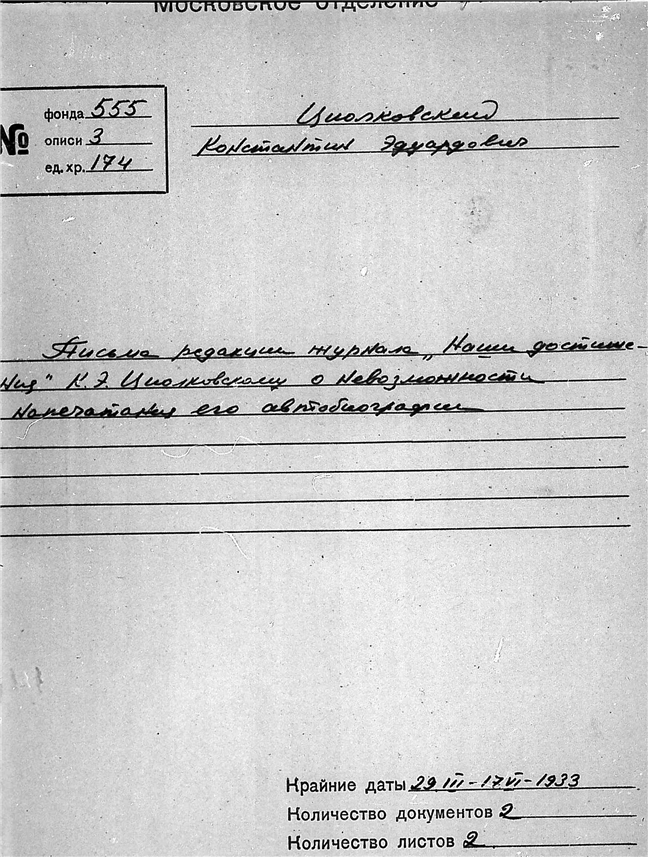 Московское отделение
№
фонда 555
описи 3
ед. хр. 174
Циолковский
Константин Эдуардович
Письма редакции журнала „Наши достиже-
ния" К.Э. Циолковскому о невозможности
напечатания его автобиографии
Крайние даты 29 III - 17 VI - 1933
Количество документов 2
Количество листов 2